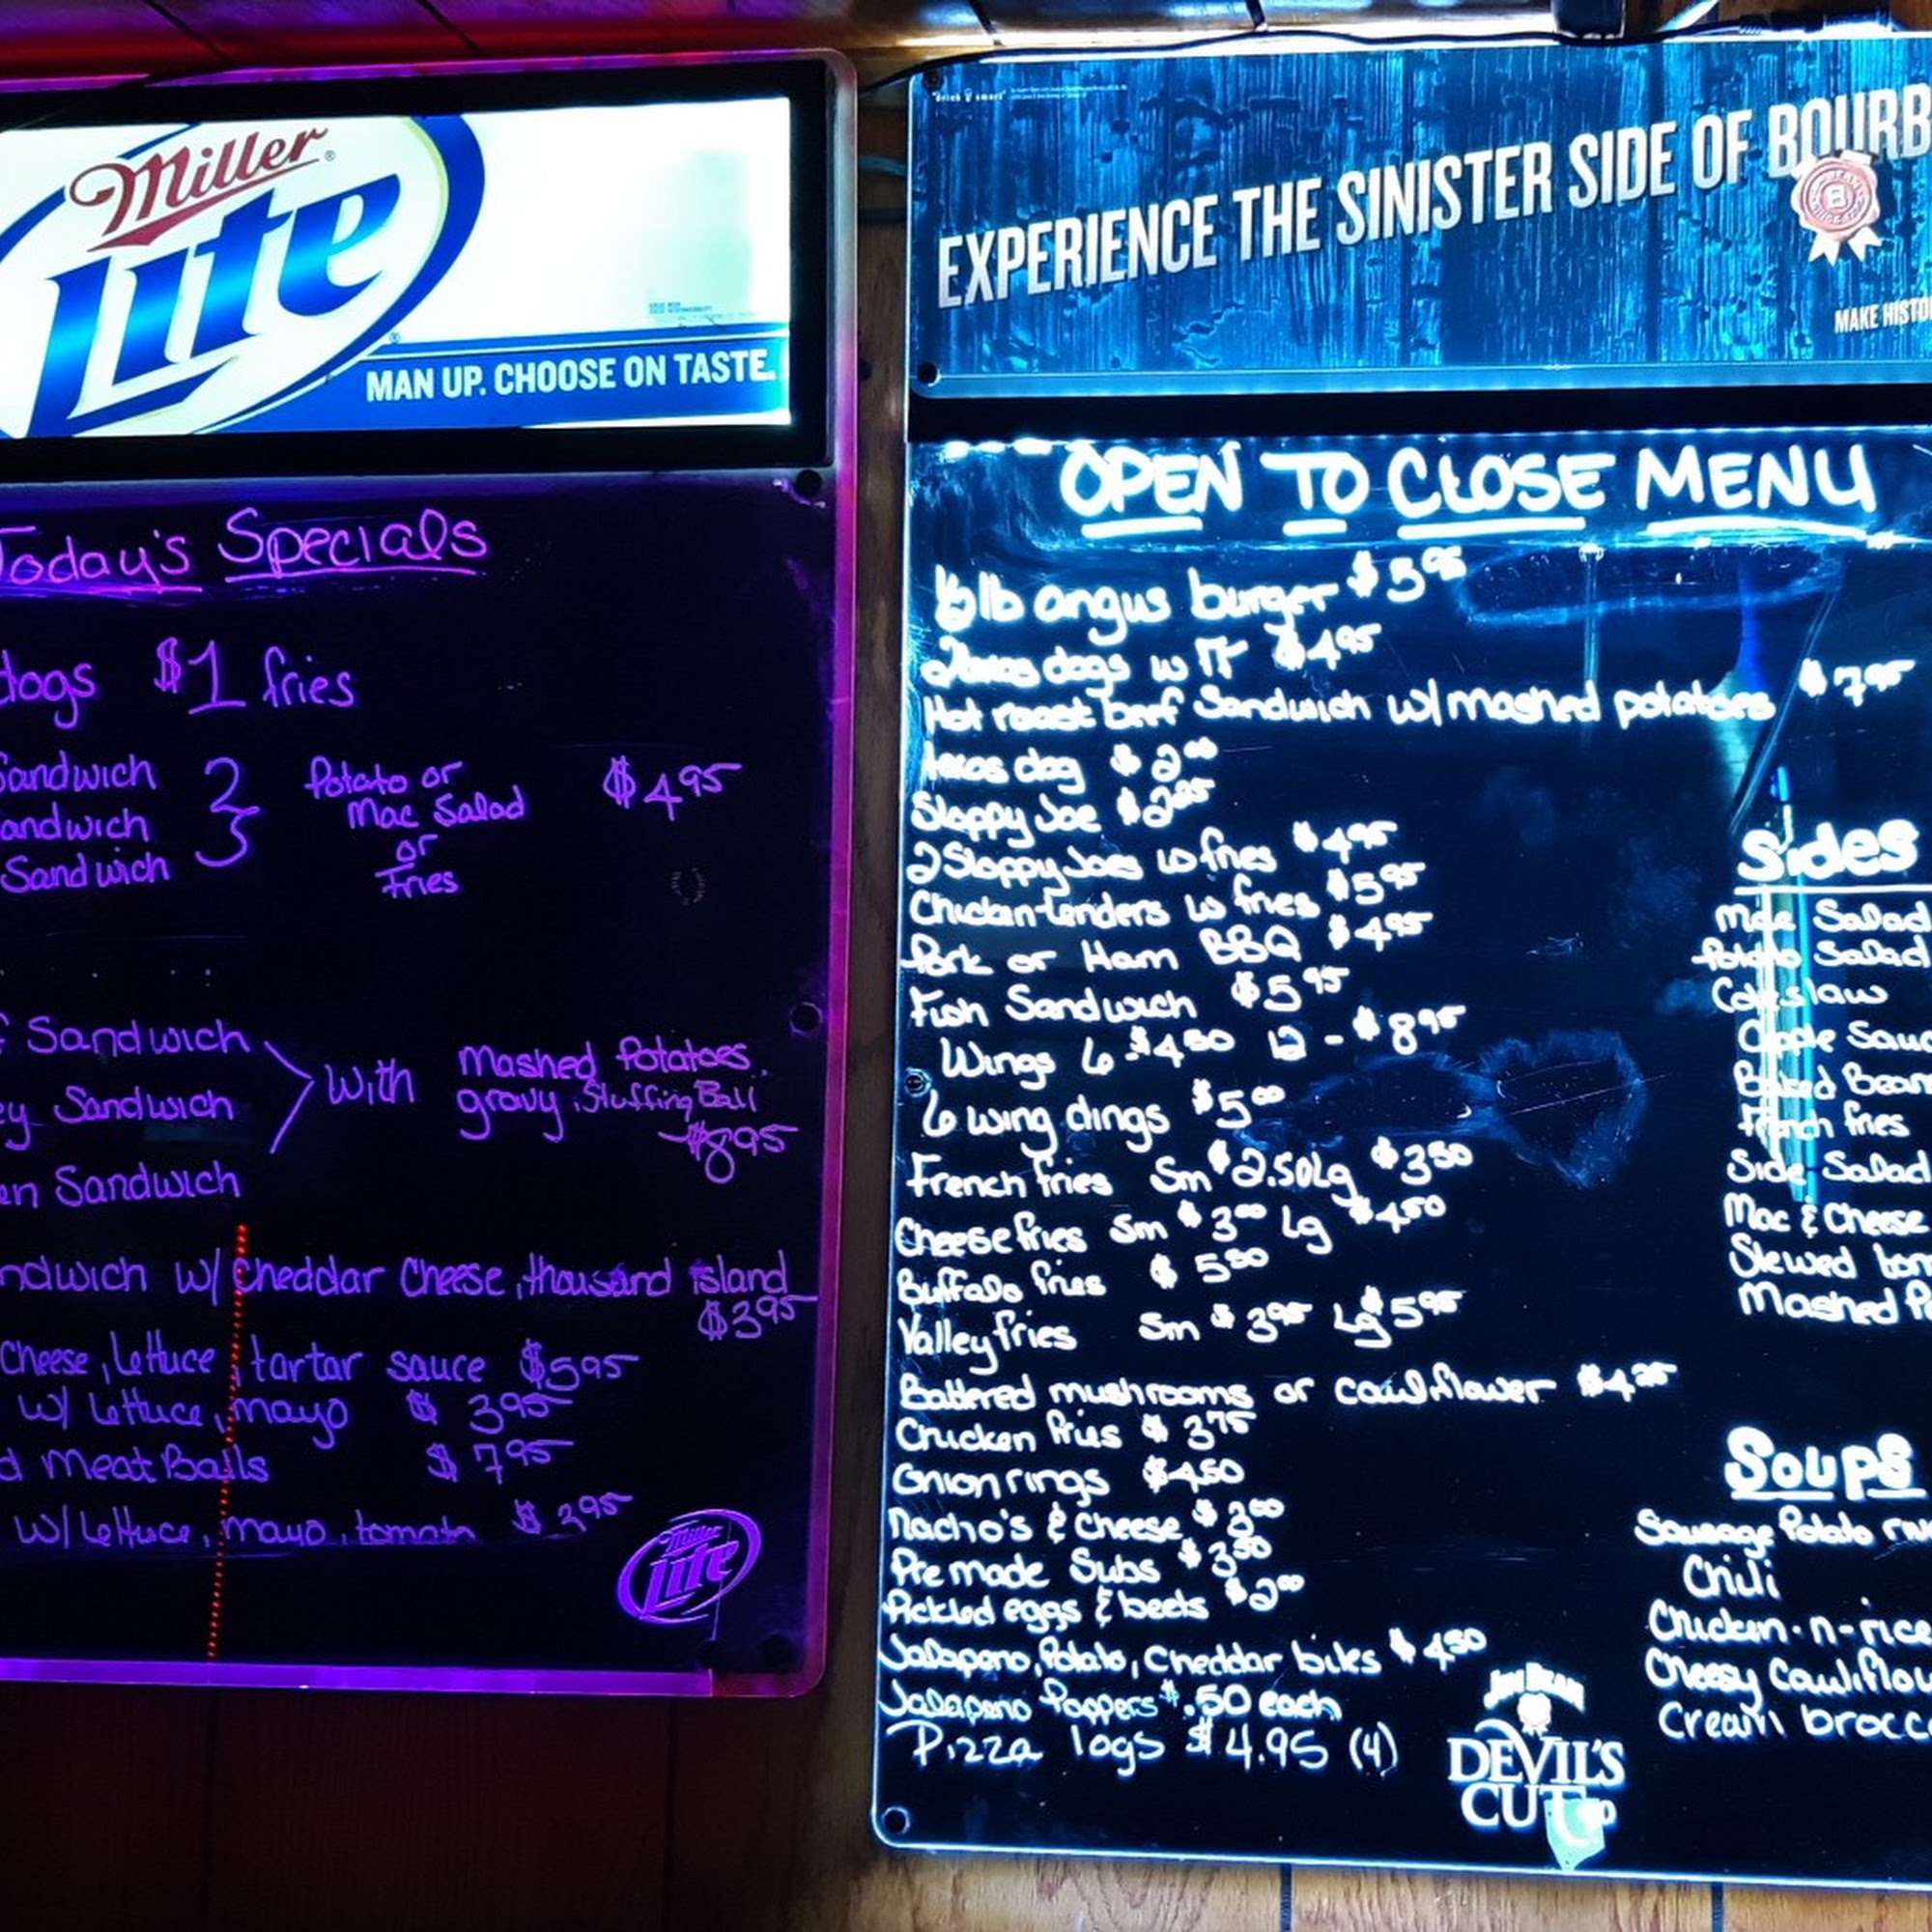 Miller
Lite
MAN UP. CHOOSE ON TASTE.
Today's Specials
dogs $1 fries
Sandwich
andwich
Sandwich
Potato or
Mac Salad
or
Fries
$4.95
Sandwich
ey Sandwich
en Sandwich
with
Mashed Potatoes
gravy, Stuffing Ball
$8.95
ndwich w/ Cheddar Cheese, thousand island
$3.95
Cheese, Lettuce, tartar sauce $5.95
w/ Lettuce, mayo $3.95
d Meat Balls $7.95
w/ Lettuce, mayo, tomato $3.95
Miller
Lite
"drink smart"
EXPERIENCE THE SINISTER SIDE OF BOURB
MAKE HISTO
OPEN TO CLOSE MENU
lb angus burger $5.95
2 texas dogs w FF $4.95
Hot roast beef Sandwich w/ mashed potatoes $7.95
texas dog $2.00
Sloppy Joe
2 Sloppy Joes w fries $4.95
Chicken tenders w fries $5.95
Pork or Ham BBQ $4.95
Fish Sandwich $5.95
Wings 6-$4.50 12-$8.95
6 wing dings $5.00
French fries Sm $2.50 Lg $3.50
Cheese fries Sm $3.00 Lg $4.50
Buffalo fries $5.50
Valley fries Sm $3.95 Lg $5.95
Battered mushrooms or cauliflower $4.25
Chicken fries $3.75
Onion rings $4.50
Nacho's & Cheese $3.00
Premade Subs $3.50
Pickled eggs & beets $2.00
Jalapeno, Potato, Cheddar bites $4.50
Jalapeno Poppers $.50 each
Pizza logs $4.95 (4)
Sides
Mac Salad
Potato Salad
Coleslaw
Apple Sauc
Baked Bean
French fries
Side Salad
Mac & Cheese
Stewed tom
Mashed P
Soups
Sausage Potato
Chili
Chicken-n-rice
Cheesy Cauliflow
Cream brocc
JIM BEAM
DEVIL'S
CUT